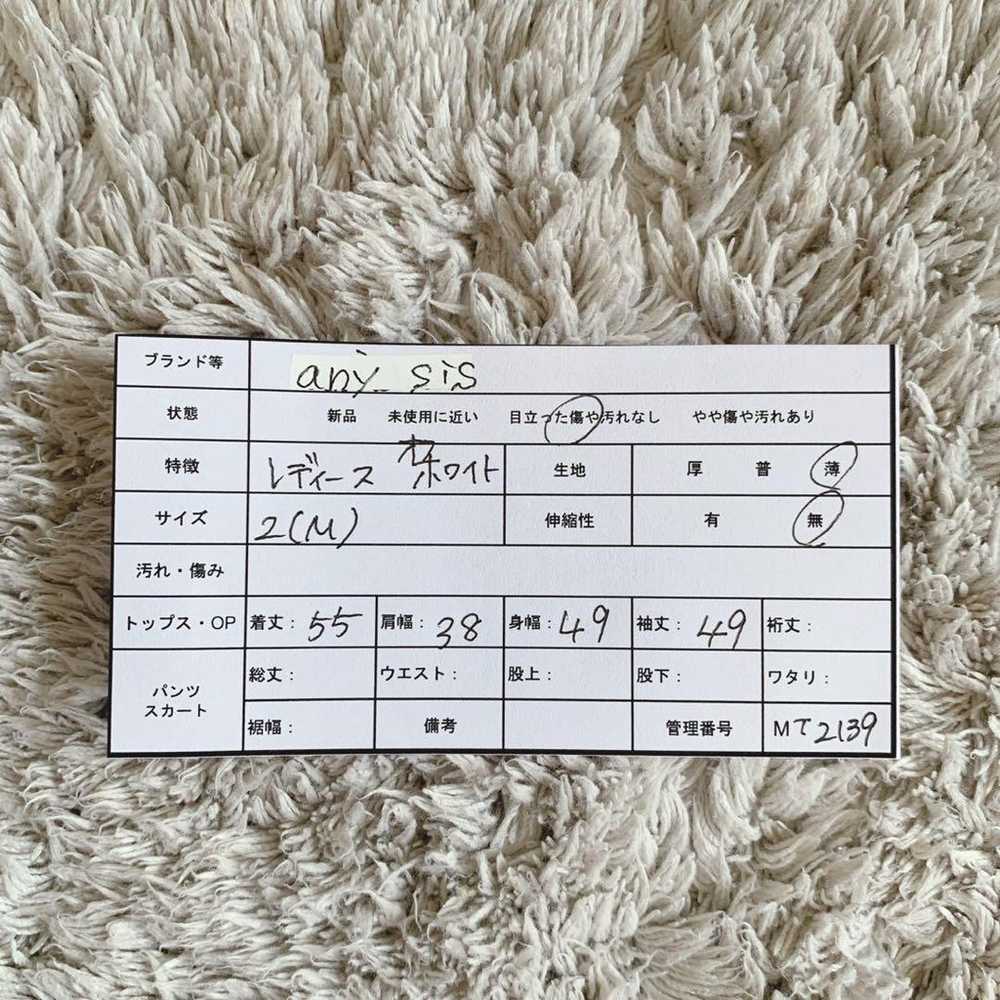 ブランド等 any sis
状態 新品 未使用に近い 目立った傷や汚れなし やや傷や汚れあり
特徴 レディース オフホワイト 生地 厚 普 薄
サイズ 2(M) 伸縮性 有 無
汚れ・傷み
トップス・OP 着丈: 55 肩幅: 38 身幅: 49 袖丈: 49 裄丈:
パンツ スカート 総丈: ウエスト: 股上: 股下: ワタリ:
裾幅: 備考 管理番号 MT2139